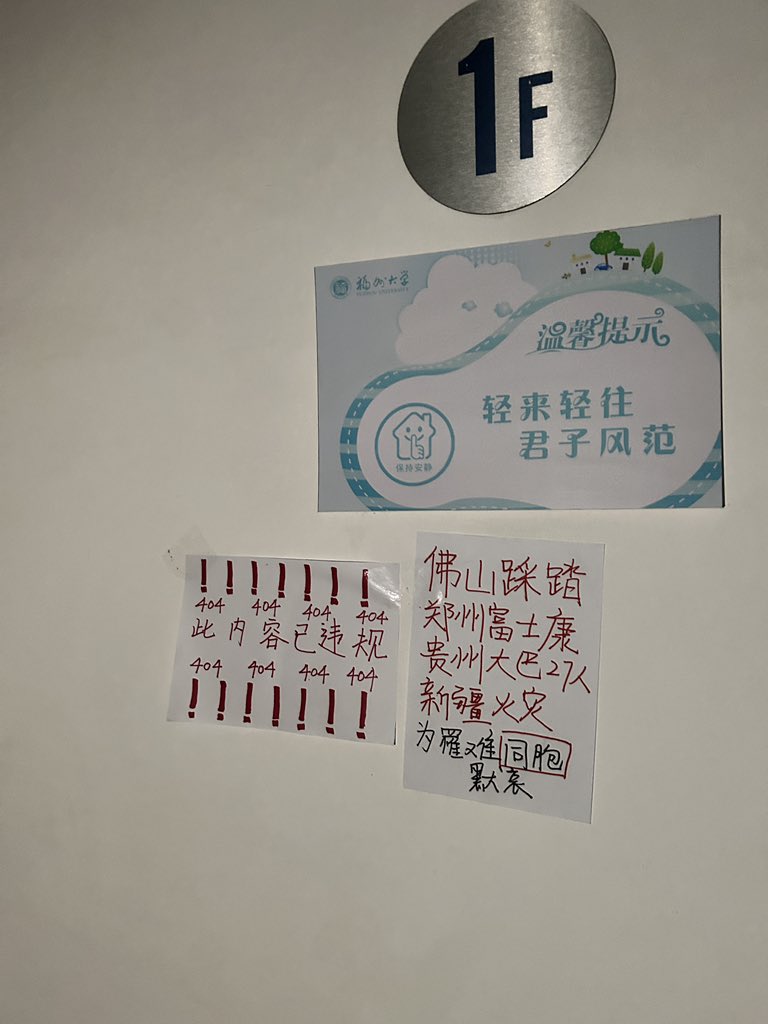 1F
福州大学
FUZHOU UNIVERSITY
温馨提示
轻来轻往
君子风范
保持安静
! ! ! ! ! ! !
404 404 404 404
此内容已违规
404 404 404 404
! ! ! ! ! ! !
佛山踩踏
郑州富士康
贵州大巴27人
新疆火灾
为罹难同胞
默哀